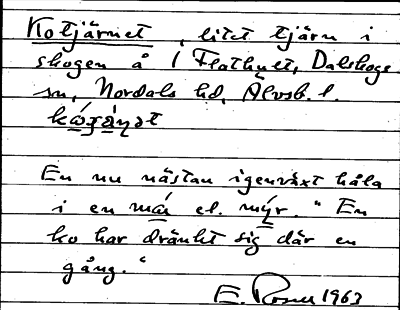 Kotjärnet, litet tjärn i
skogen å 1 Flathult, Dalskogs
sn, Nordals hd, Älvsb. l.
En nu nästan igenväxt håla
i en mar el. myr. "En
ko har dränkt sig där en
gång."
E. Rosell 1963